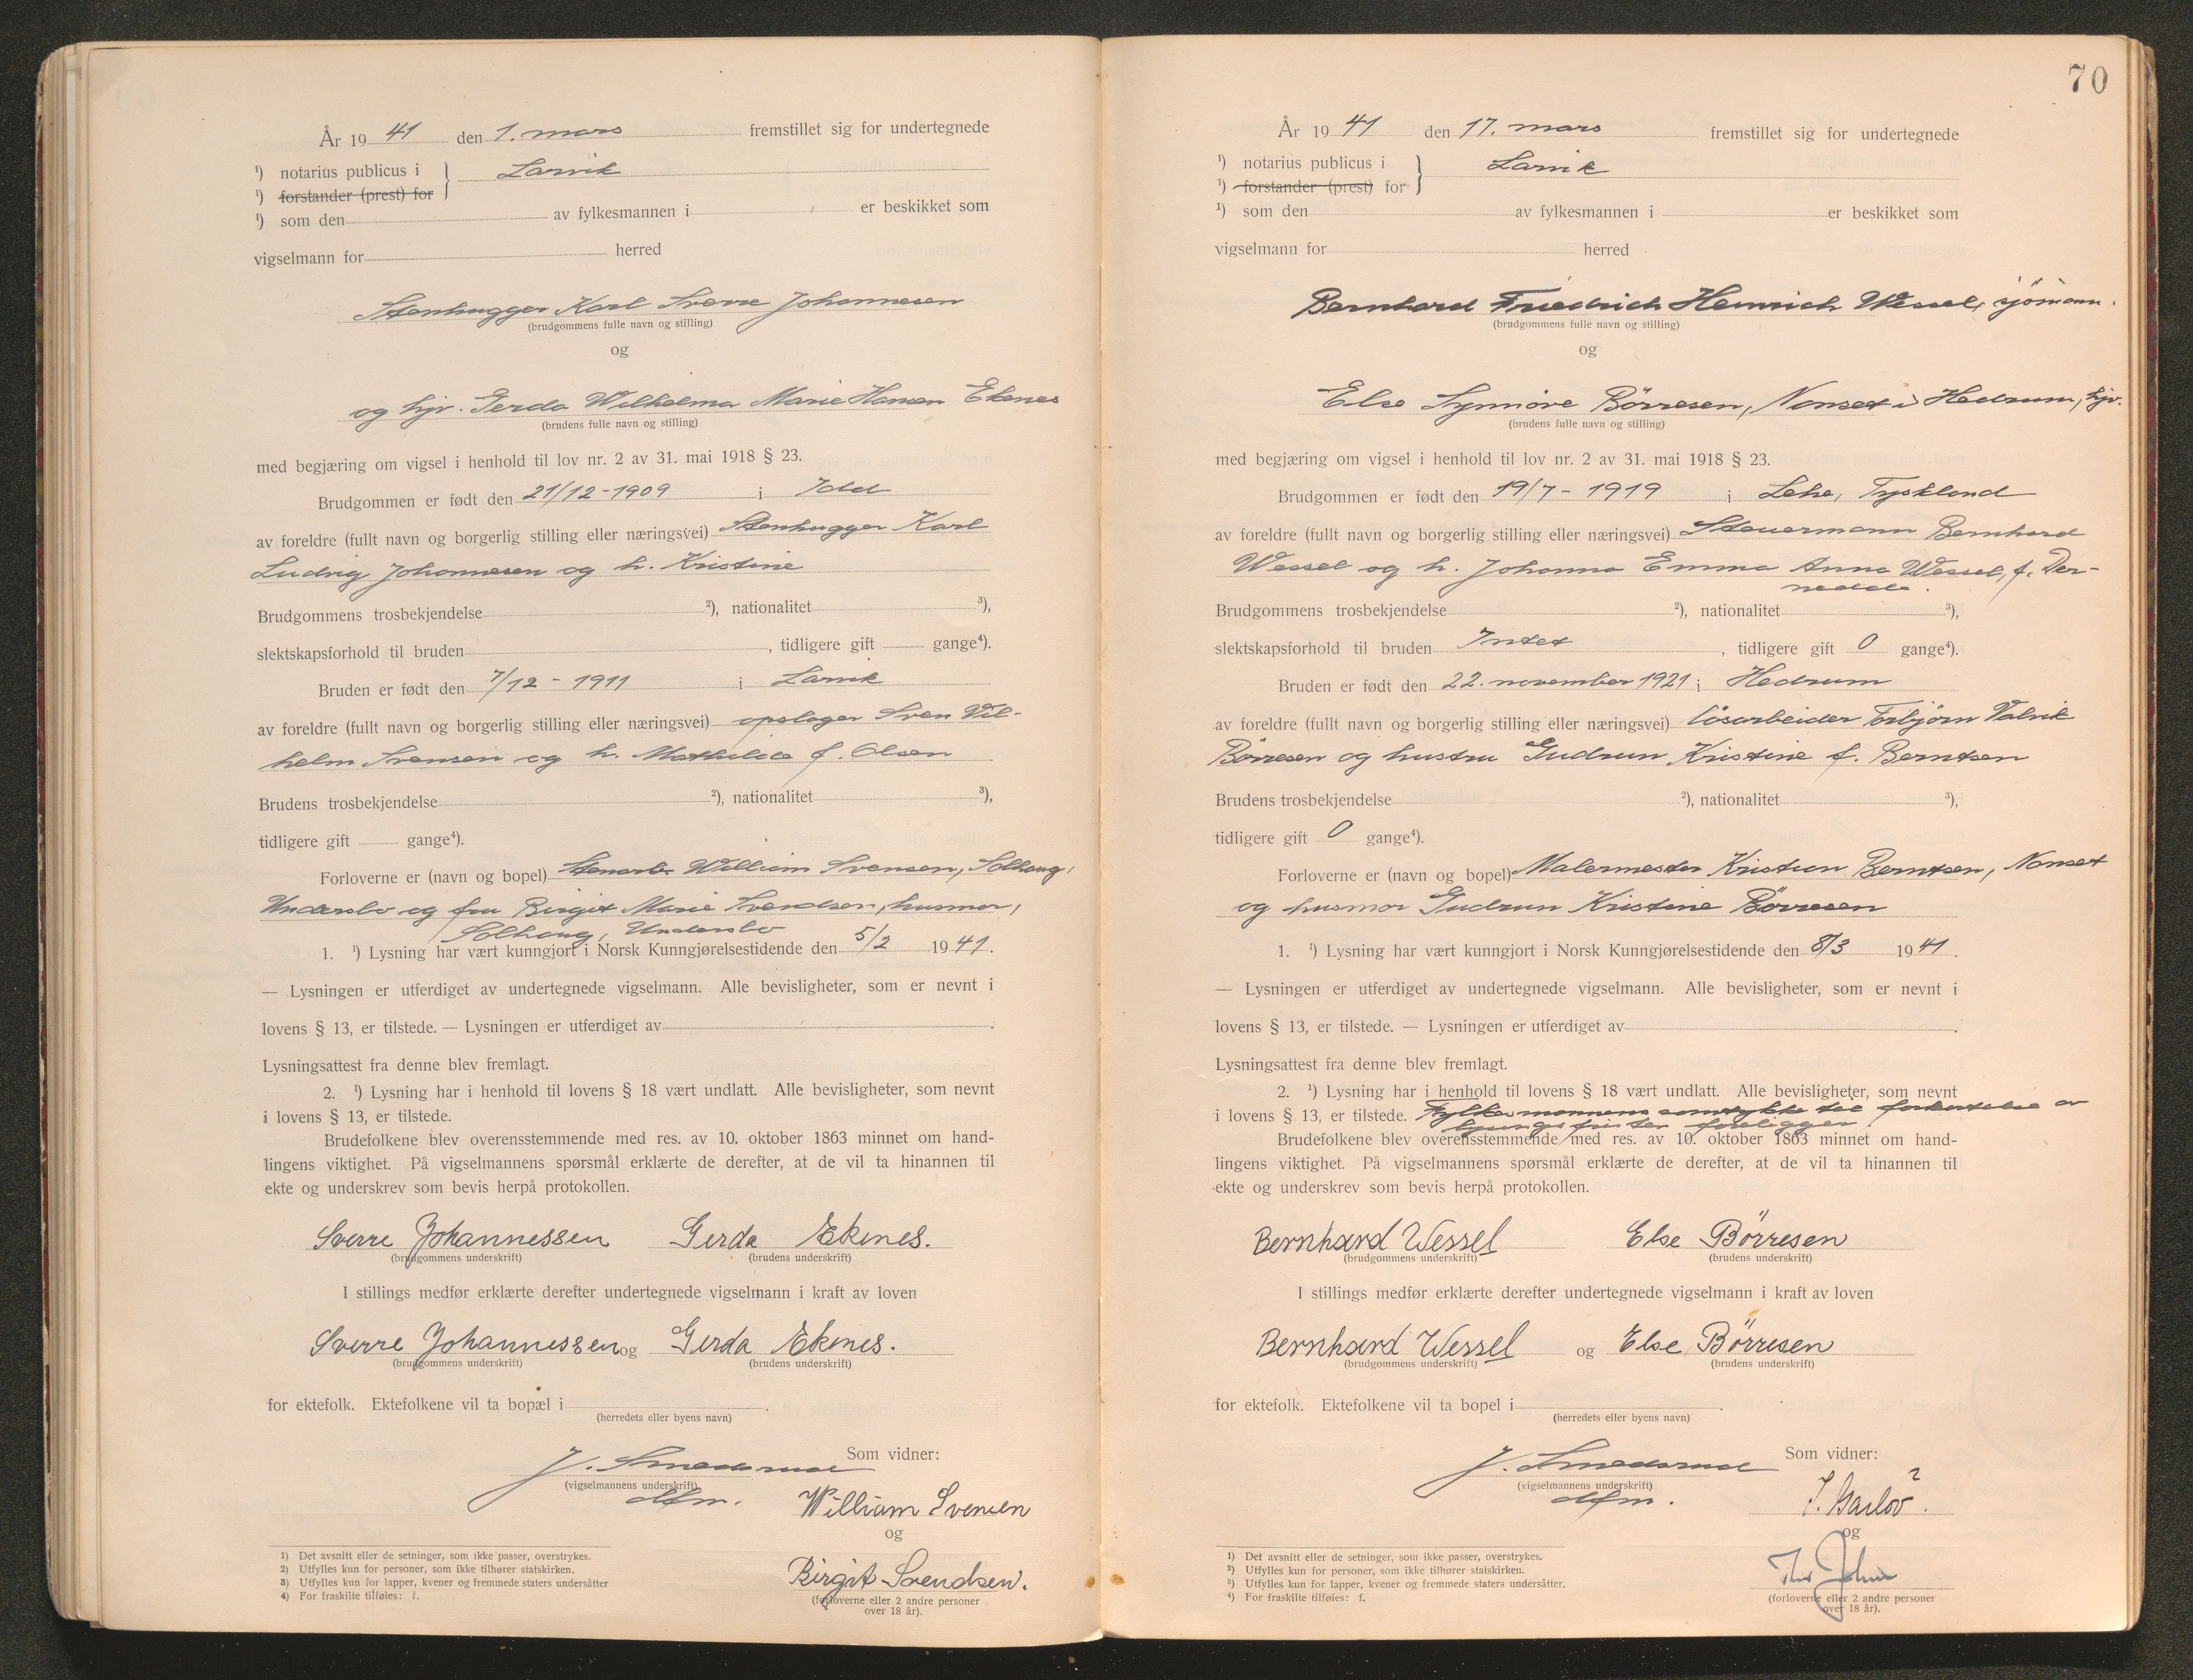 År 1941 den 1. mars fremstillet sig for undertegnede
¹) notarius publicus i } Larvik
¹) forstander (prest) for
¹) som den av fylkesmannen i er beskikket som
vigselmann for herred
Stenhugger Karl Sverre Johannesen
(brudgommens fulle navn og stilling)
og
og hjv. Gerda Wilhelma Marie Hansen Ekenes
(brudens fulle navn og stilling)
med begjæring om vigsel i henhold til lov nr. 2 av 31. mai 1918 § 23.
Brudgommen er født den 21/12-1909 i Idd
av foreldre (fullt navn og borgerlig stilling eller næringsvei) Stenhugger Karl
Ludvig Johannesen og h. Kristine
Brudgommens trosbekjendelse ²), nationalitet ³),
slektskapsforhold til bruden , tidligere gift gange⁴).
Bruden er født den 7/12 - 1911 i Larvik
av foreldre (fullt navn og borgerlig stilling eller næringsvei) opslager Sven Vil-
helm Svensen og h. Mathilde f. Olsen
Brudens trosbekjendelse ²), nationalitet ³),
tidligere gift gange⁴).
Forloverne er (navn og bopel) Stenarb. William Svensen, Solhaug,
Undersbo og fru Birgit Marie Svendsen, husmor,
Solhaug, Undersbo
1. ¹) Lysning har vært kunngjort i Norsk Kunngjørelsestidende den 5/2 1941.
— Lysningen er utferdiget av undertegnede vigselmann. Alle bevisligheter, som er nevnt i
lovens § 13, er tilstede. — Lysningen er utferdiget av .
Lysningsattest fra denne blev fremlagt.
2. ¹) Lysning har i henhold til lovens § 18 vært undlatt. Alle bevisligheter, som nevnt
i lovens § 13, er tilstede.
Brudefolkene blev overensstemmende med res. av 10. oktober 1863 minnet om hand-
lingens viktighet. På vigselmannens spørsmål erklærte de derefter, at de vil ta hinannen til
ekte og underskrev som bevis herpå protokollen.
Sverre Johannessen Gerda Ekenes.
(brudgommens underskrift) (brudens underskrift)
I stillings medfør erklærte derefter undertegnede vigselmann i kraft av loven
Sverre Johannessen og Gerda Ekenes.
(brudgommens underskrift) (brudens underskrift)
for ektefolk. Ektefolkene vil ta bopæl i .
(herredets eller byens navn)
J. Smedsrud Som vidner:
(vigselmannens underskrift)
dfm. William Svensen
og
Birgit Svendsen.
(forloverne eller 2 andre personer
over 18 år).
1) Det avsnitt eller de setninger, som ikke passer, overstrykes.
2) Utfylles kun for personer, som ikke tilhører statskirken.
3) Utfylles kun for lapper, kvener og fremmede staters undersåtter
4) For fraskilte tilføies: f.
70
År 1941 den 17. mars fremstillet sig for undertegnede
¹) notarius publicus i } Larvik
¹) forstander (prest) for
¹) som den av fylkesmannen i er beskikket som
vigselmann for herred
Bernhard Friedrich Heinrich Wessel, sjömann.
(brudgommens fulle navn og stilling)
og
Else Synnöve Börresen, Nonset i Hedrum, hjv.
(brudens fulle navn og stilling)
med begjæring om vigsel i henhold til lov nr. 2 av 31. mai 1918 § 23.
Brudgommen er født den 19/7 - 1919 i Lehe, Tyskland
av foreldre (fullt navn og borgerlig stilling eller næringsvei) Steuermann Bernhard
Wessel og h. Johanna Emma Anna Wessel, f. Der-
nedde.
Brudgommens trosbekjendelse ²), nationalitet ³),
slektskapsforhold til bruden Intet , tidligere gift 0 gange⁴).
Bruden er født den 22. november 1921 i Hedrum
av foreldre (fullt navn og borgerlig stilling eller næringsvei) lösarbeider Torbjörn Valvik
Börresen og hustru Gudrun Kristine f. Berntsen
Brudens trosbekjendelse ²), nationalitet ³),
tidligere gift 0 gange⁴).
Forloverne er (navn og bopel) Malermester Kristian Berntsen, Nonset
og husmor Gudrun Kristine Börresen
1. ¹) Lysning har vært kunngjort i Norsk Kunngjørelsestidende den 8/3 1941.
— Lysningen er utferdiget av undertegnede vigselmann. Alle bevisligheter, som er nevnt i
lovens § 13, er tilstede. — Lysningen er utferdiget av .
Lysningsattest fra denne blev fremlagt.
2. ¹) Lysning har i henhold til lovens § 18 vært undlatt. Alle bevisligheter, som nevnt
i lovens § 13, er tilstede. Fylkesmannens samtykke til forkortelse av
lysningsfrister foreligger.
Brudefolkene blev overensstemmende med res. av 10. oktober 1863 minnet om hand-
lingens viktighet. På vigselmannens spørsmål erklærte de derefter, at de vil ta hinannen til
ekte og underskrev som bevis herpå protokollen.
Bernhard Wessel Else Börresen
(brudgommens underskrift) (brudens underskrift)
I stillings medfør erklærte derefter undertegnede vigselmann i kraft av loven
Bernhard Wessel og Else Börresen
(brudgommens underskrift) (brudens underskrift)
for ektefolk. Ektefolkene vil ta bopel i .
(herredets eller byens navn)
J. Smedsrud Som vidner:
(vigselmannens underskrift)
dfm.
og
(forloverne eller 2 andre personer
over 18 år).
1) Det avsnitt eller de setninger, som ikke passer, overstrykes.
2) Utfylles kun for personer, som ikke tilhører statskirken.
3) Utfylles kun for lapper, kvener og fremmede staters undersåtter.
4) For fraskilte tilføies: f.